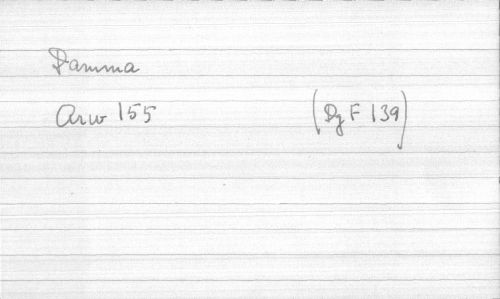 Damma
Arw 155 (Dg F 139)